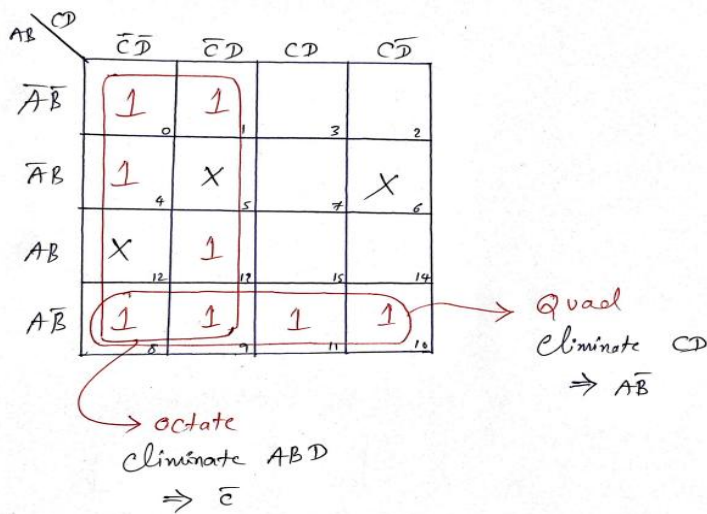 AB CD
C̅D̅ C̅D CD CD̅
A̅B̅ 1 0 1 1 3 2
A̅B 1 4 X 5 7 X 6
AB X 12 1 13 15 14
AB̅ 1 8 1 9 1 11 1 10
Quad
eliminate CD
⇒ AB̅
octate
eliminate ABD
⇒ C̅